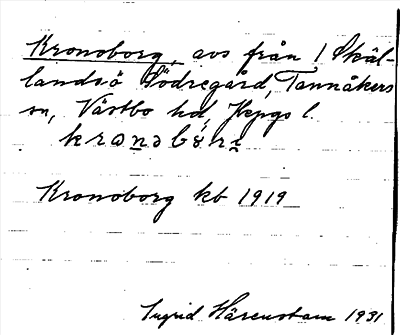 Kronoborg, avs från 1 Skäl-
landsö Södregård, Tannåkers
sn, Västbo hd,
kronobórj
Kronoborg kb 1919
Ingrid Härenstam 1931